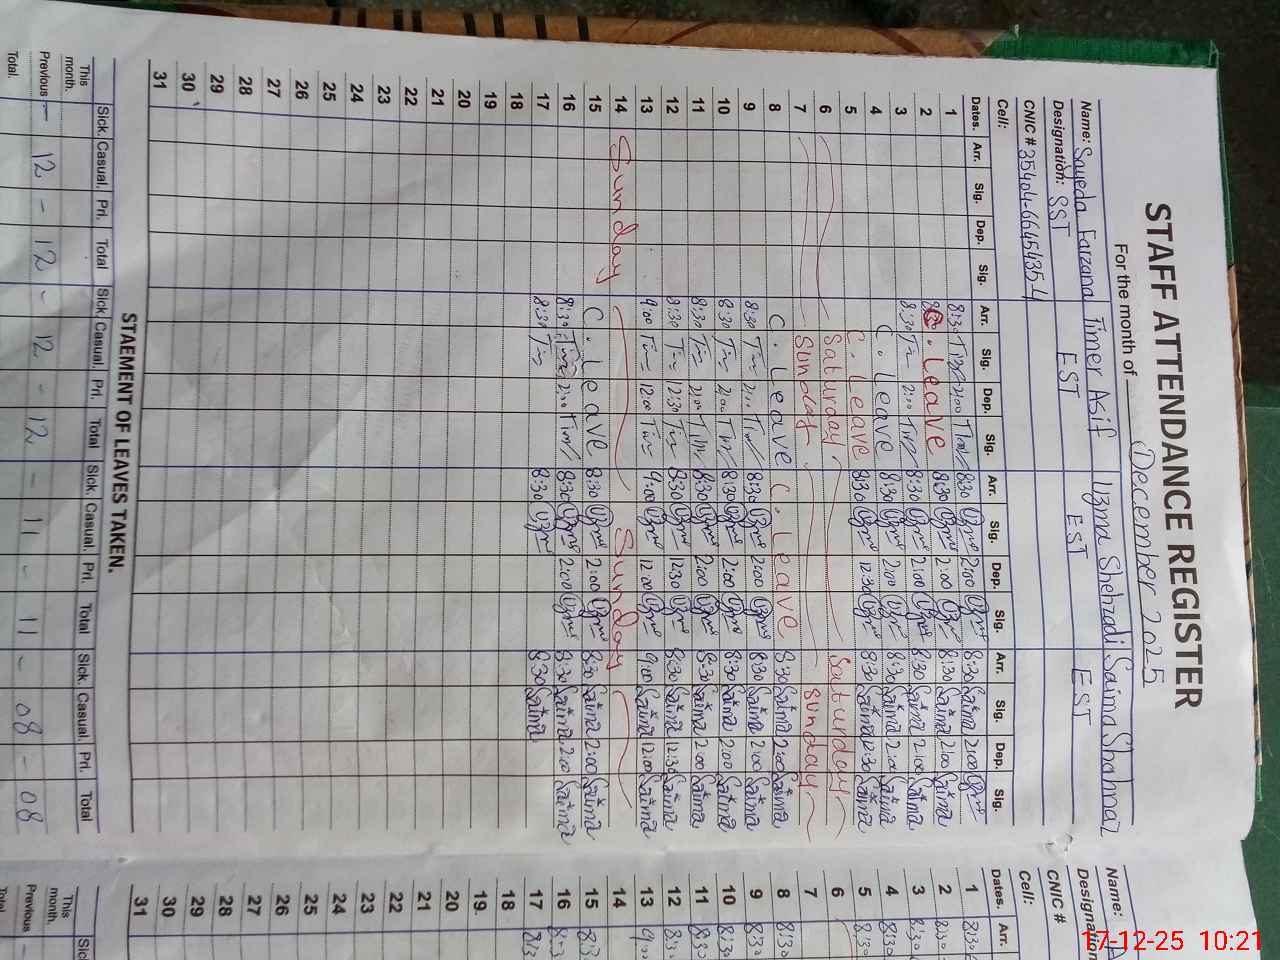 STAFF ATTTENDANCE REGISTER
For the month of December 2025
Name: Sayeda Farzana Timer Asif Uzma Shehzadi Saima Shahnaz
Designation: SST EST EST EST
CNIC # 35404-6645435-4
Cell:
Dates. Arr. Sig. Dep. Sig. Arr. Sig. Dep. Sig. Arr. Sig. Dep. Sig. Arr. Sig. Dep. Sig.
1 8:30 2:00 8:30 Uzma 2:00 Uzma 8:30 Saima 2:00
2 C. Leave 8:30 Uzma 2:00 Uzma 8:30 Saima 2:00 Saima
3 8:30 2:00 8:30 Uzma 2:00 Uzma 8:30 Saima 2:00 Saima
4 C. Leave 8:30 Uzma 2:00 Uzma 8:30 Saima 2:00 Saima
5 C. Leave 8:30 Uzma 12:30 Uzma 8:30 Saima 12:30 Saima
6 Saturday Saturday
7 Sunday Sunday
8 C. Leave C. Leave 8:30 Saima 2:00 Saima
9 8:30 2:00 8:30 Uzma 2:00 Uzma 8:30 Saima 2:00 Saima
10 8:30 2:00 8:30 Uzma 2:00 Uzma 8:30 Saima 2:00 Saima
11 8:30 2:00 8:30 Uzma 2:00 Uzma 8:30 Saima 2:00 Saima
12 8:30 12:30 8:30 Uzma 12:30 Uzma 8:30 Saima 12:30 Saima
13 9:00 12:00 9:00 Uzma 12:00 Uzma 9:00 Saima 12:00 Saima
14 Sunday Sunday
15 C. Leave 8:30 Uzma 2:00 Uzma 8:30 Saima 2:00 Saima
16 8:30 2:00 8:30 Uzma 2:00 Uzma 8:30 Saima 2:00 Saima
17 8:30 8:30 Uzma 8:30 Saima
18
19
20
21
22
23
24
25
26
27
28
29
30
31
STAEMENT OF LEAVES TAKEN.
Sick. Casual. Pri. Total Sick. Casual. Pri. Total Sick. Casual. Pri. Total Sick. Casual. Pri. Total
This month.
Previous - 12 - 12 - 12 - 12 - 11 - 11 - 08 - 08
Total.
Name:
Designation
CNIC #
Cell:
Dates. Arr.
1 8:30
2 8:30
3 8:30
4 8:30
5 8:30
6
7
8 8:30
9 8:30
10 8:30
11 8:30
12 8:30
13 9:00
14
15
16
17
18
19.
20
21
22
23
24
25
26
27
28
29
30
31
This month.
Previous
Total
17-12-25 10:21